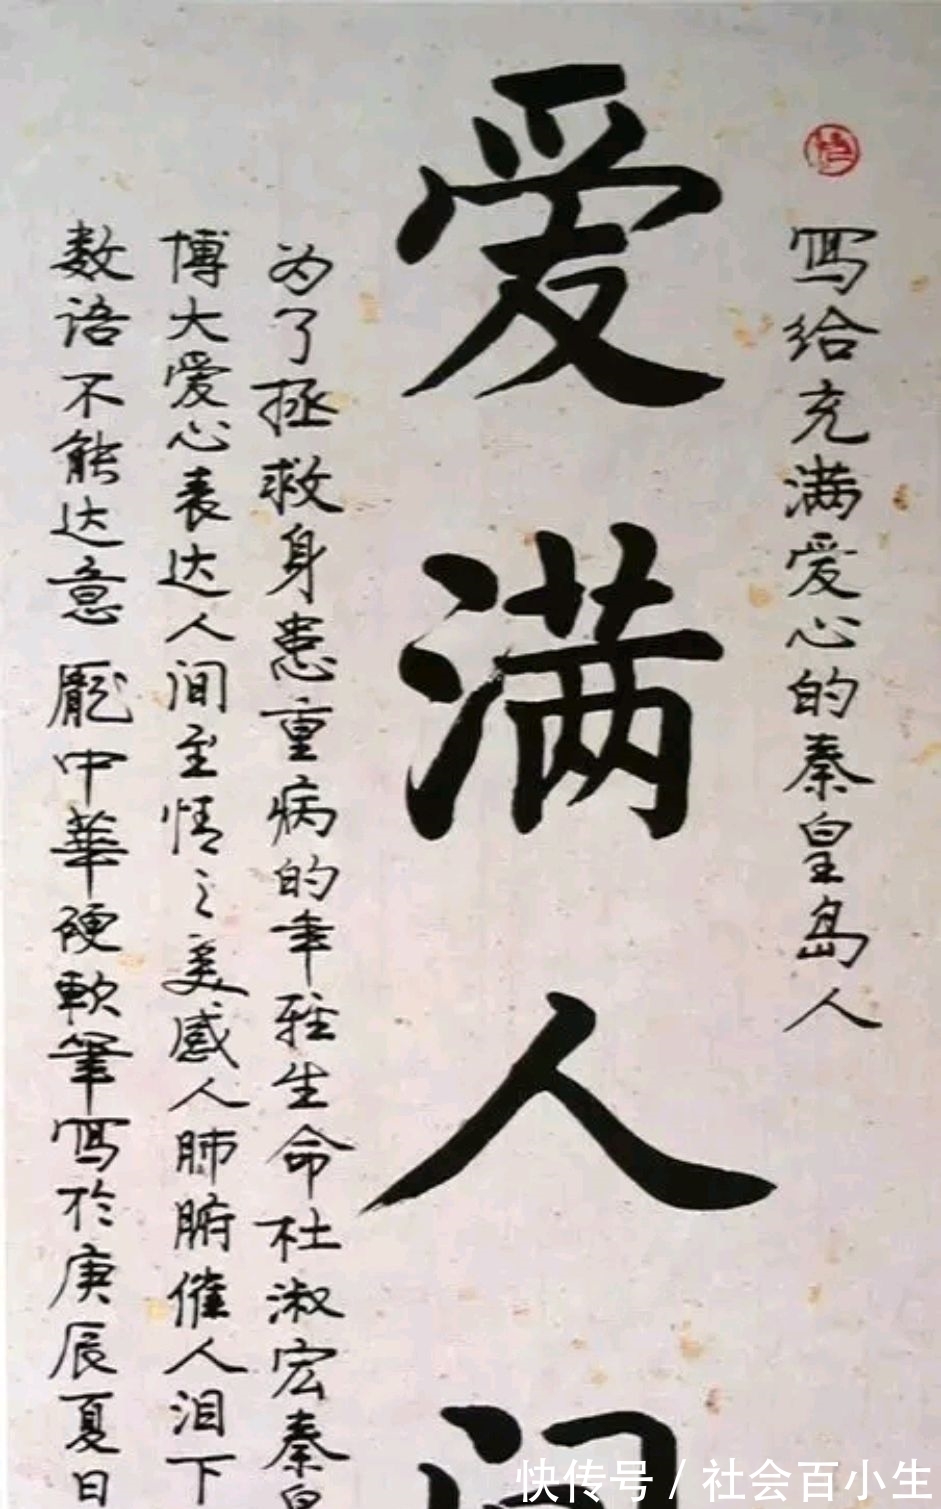 写给充满爱心的秦皇岛人
爱满人间
为了拯救身患重病的幸雅生命杜淑宏秦皇
博大爱心表达人间至情之美感人肺腑催人泪下
数语不能达意 龐中華硬軟筆写於庚辰夏日
快传号 / 社会百小生